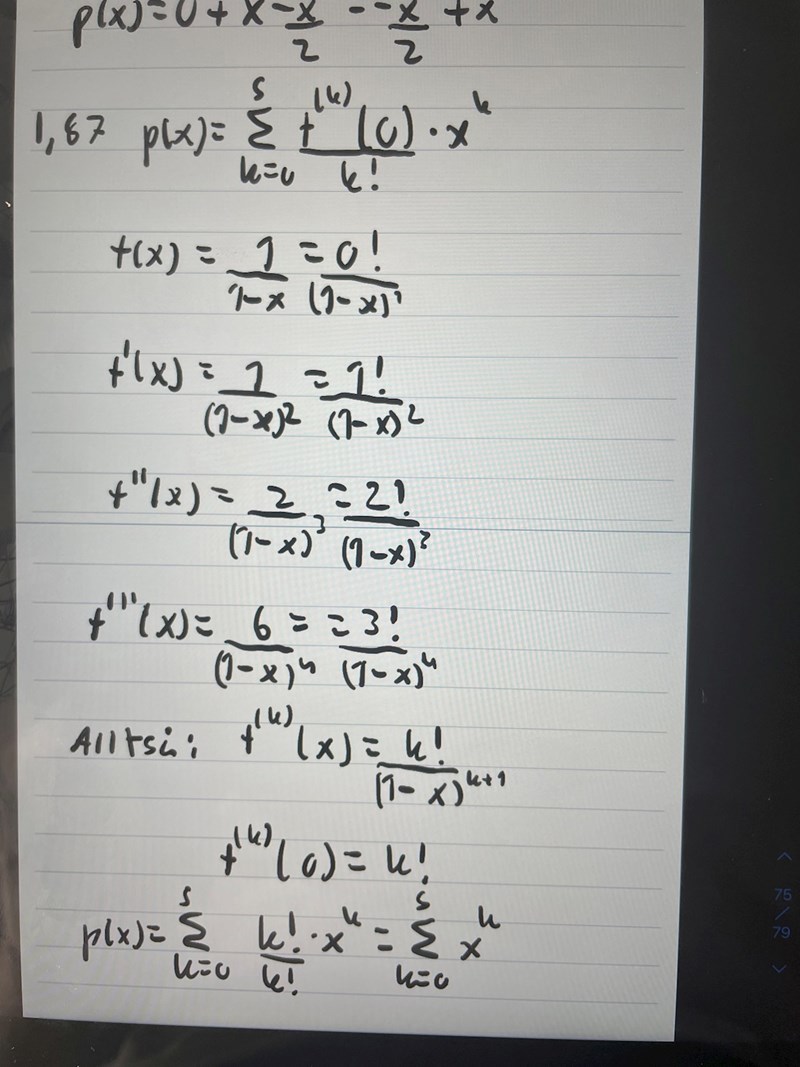 p(x)=0+x-x/2 --x/2 +x
1,67 p(x)= 5 Σ k=0 f^(k)(0)/k! · x^k
f(x) = 1/(1-x) = 0!/(1-x)^1
f'(x) = 1/(1-x)^2 = 1!/(1-x)^2
f''(x) = 2/(1-x)^3 = 2!/(1-x)^3
f'''(x) = 6/(1-x)^4 = = 3!/(1-x)^4
Alltså: f^(k)(x) = k!/(1-x)^k+1
f^(k)(0) = k!
p(x) = 5 Σ k=0 k!/k! · x^k = 5 Σ k=0 x^k
75
/
79